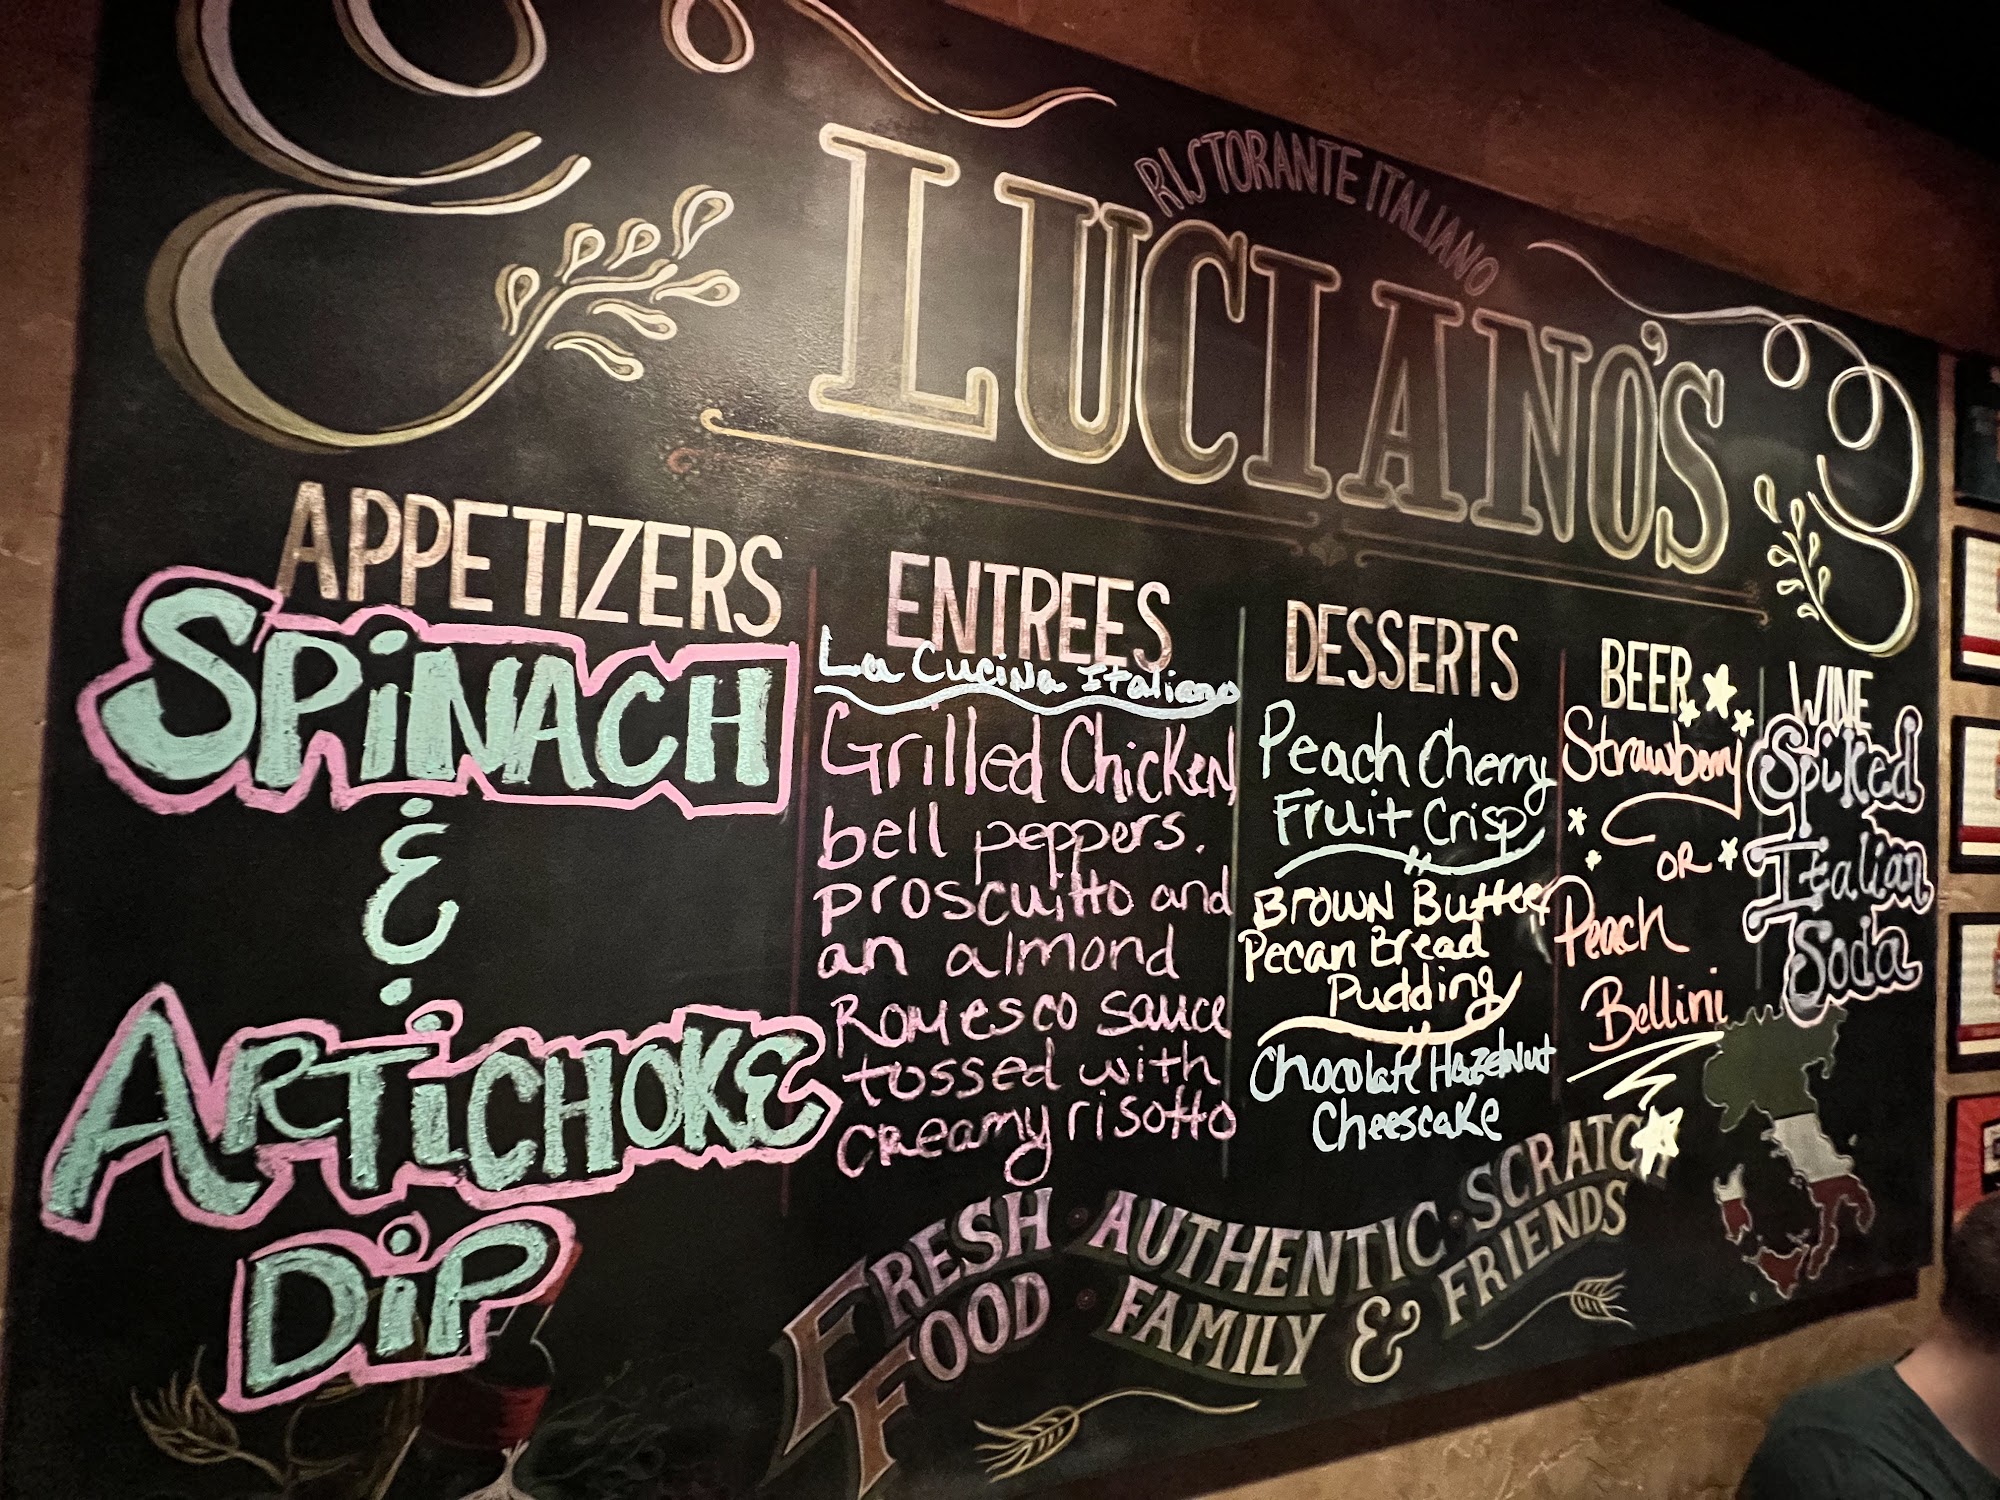 RISTORANTE ITALIANO
LUCIANO'S
APPETIZERS
SPiNACH
&
ARTiCHOKE
DiP
ENTREES
La Cucina Italiano
Grilled Chicken,
bell peppers.
proscuitto and
an almond
Romesco sauce
tossed with
creamy risotto
DESSERTS
Peach Cherry
Fruit Crisp
Brown Butter
Pecan Bread
Pudding
Chocolate Hazelnut
Cheesecake
BEER
Strawberry
OR
Peach
Bellini
WINE
Spiked
Italian
Soda
FRESH · AUTHENTIC · SCRATCH
FOOD · FAMILY & FRIENDS